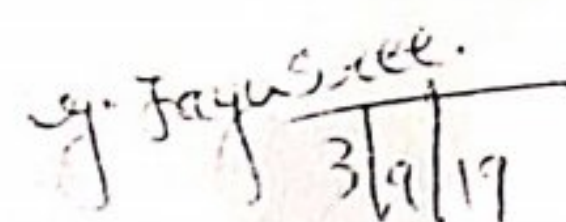 y. JayuSree.
3/9/19